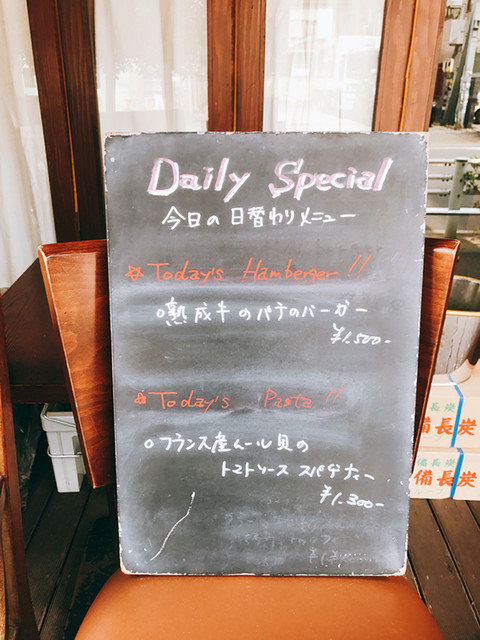 Daily Special
今日の日替わりメニュー
Today's Hamberger!!
熟成牛のパテのバーガー
¥1.500-
Today's Pasta!!
フランス産ムール貝の
トマトソース スパゲティー
¥1.300-
長炭
備長炭
備長炭
備長炭